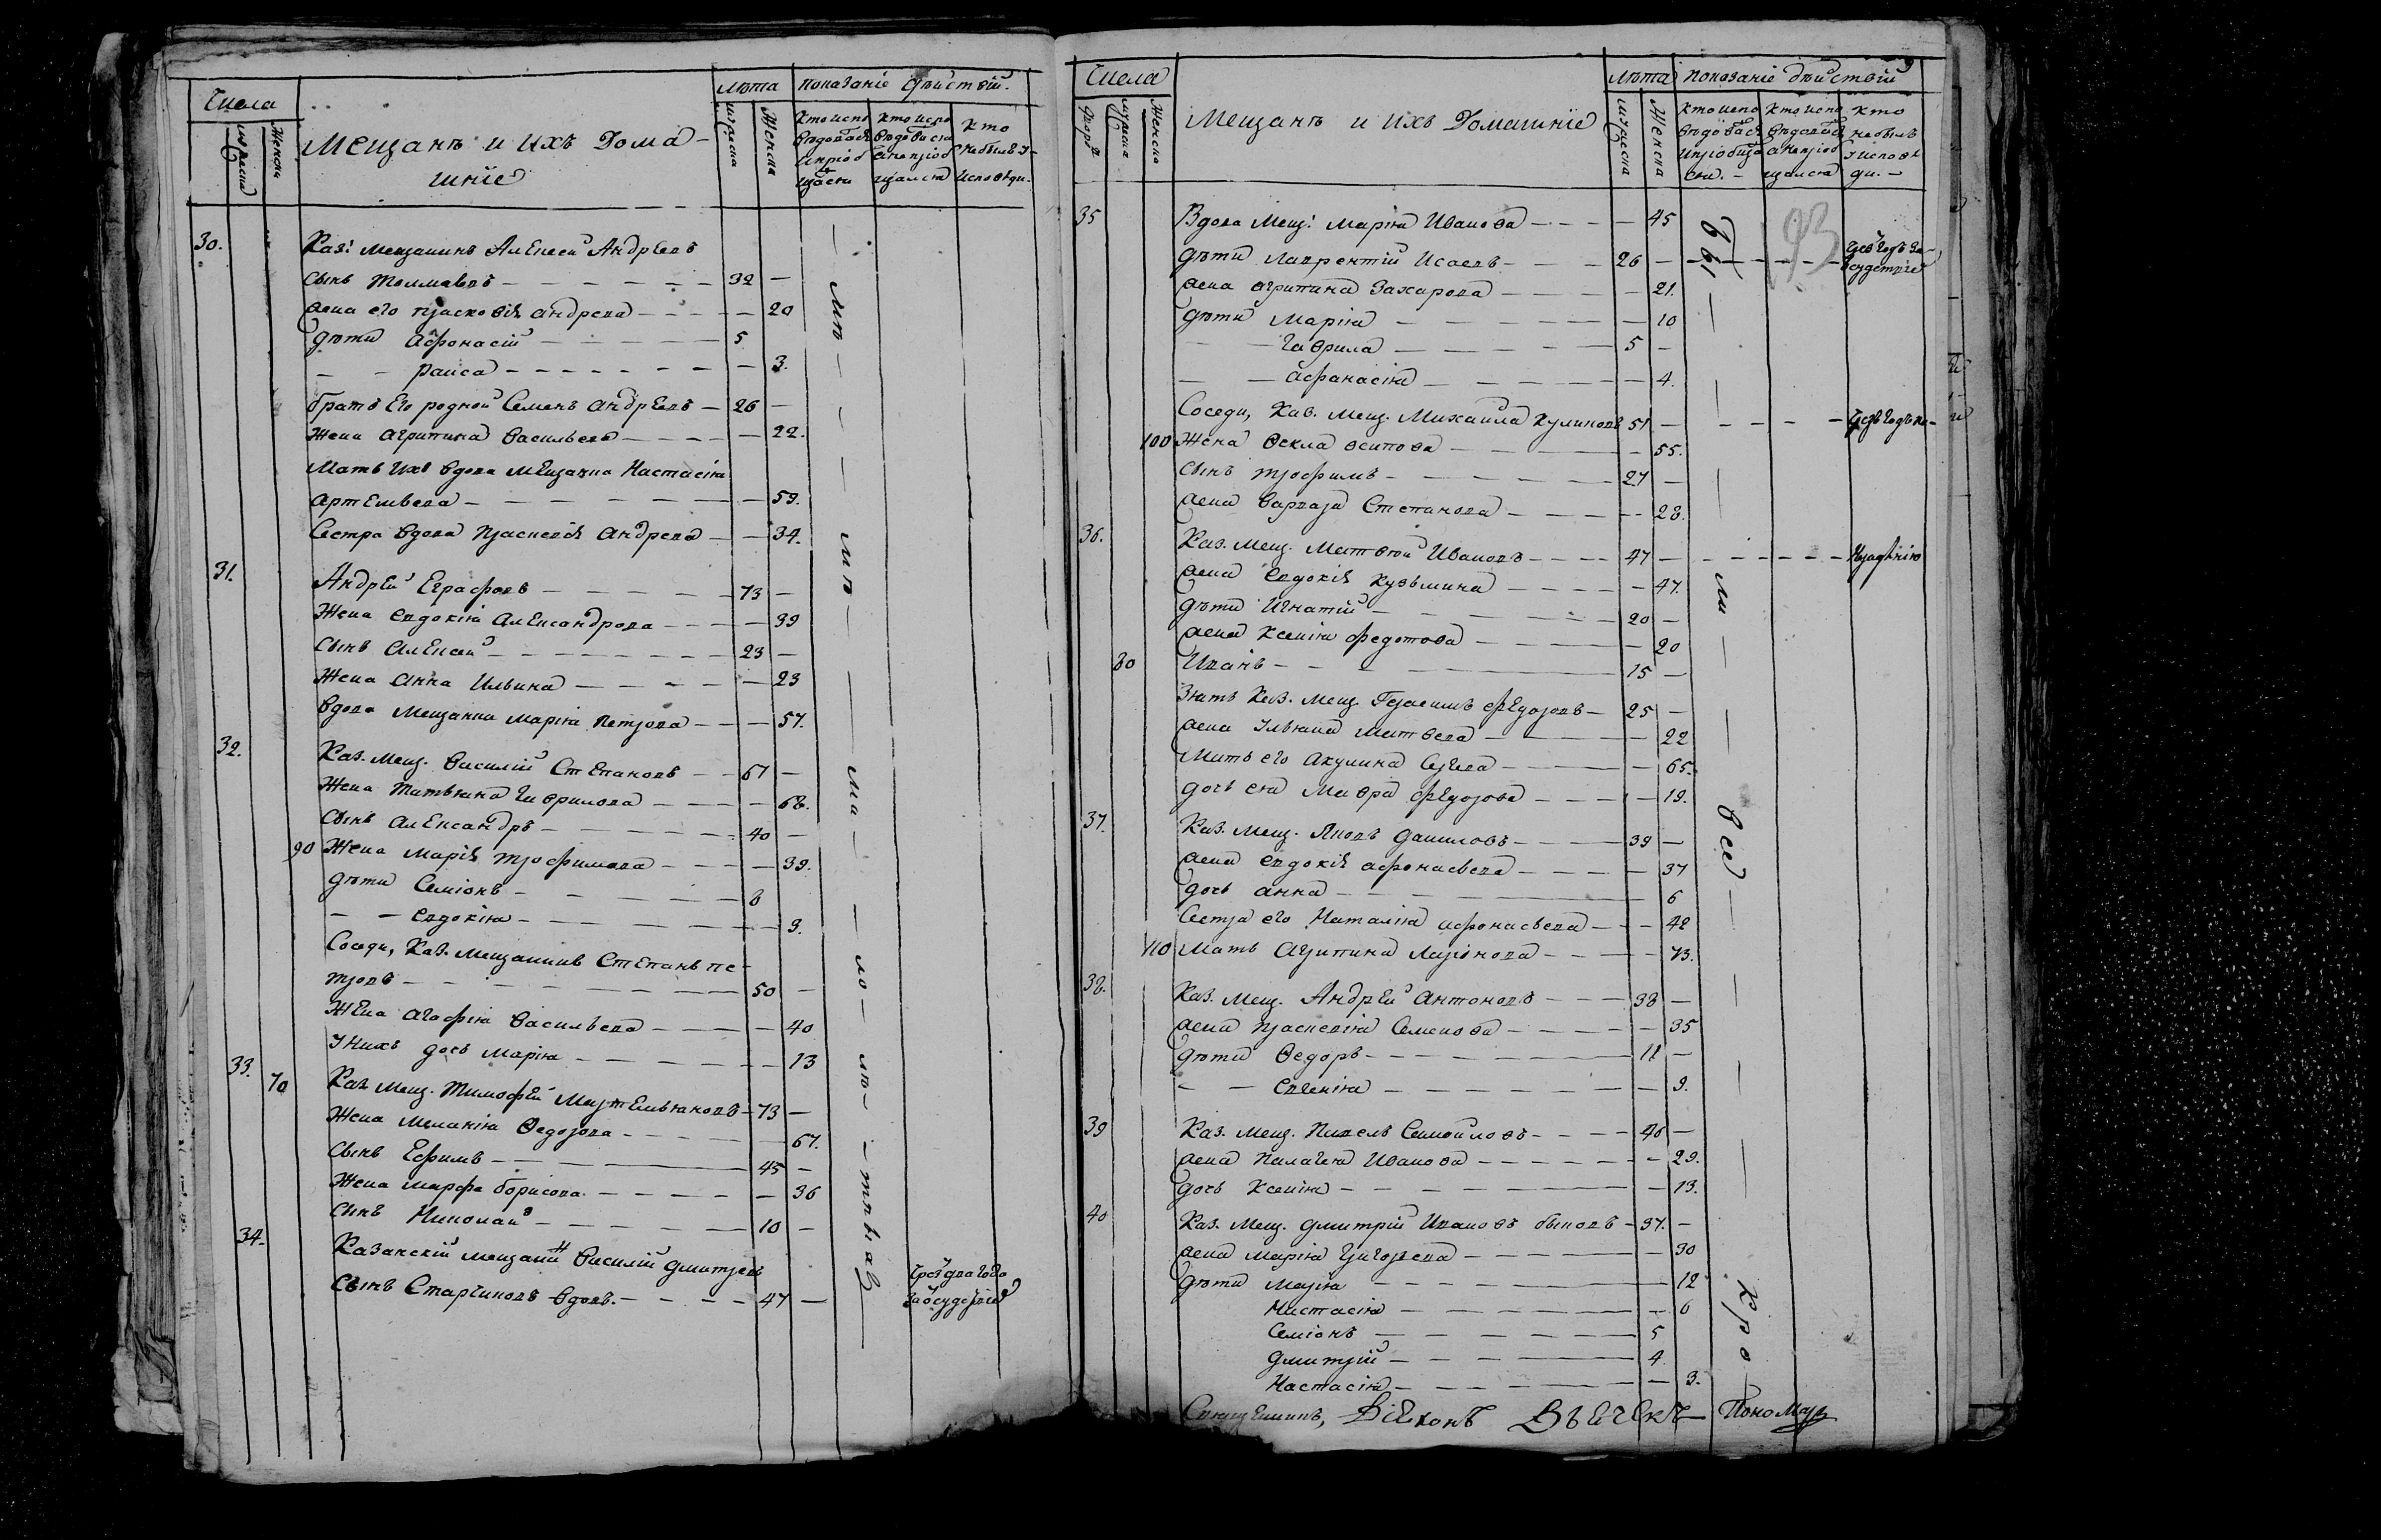 Числа
мужеска
Женска
Мещанъ и ихъ Дома-
шніе
Лѣта
мужеска
Женска
показаніе дѣиствіи.
кто испо
вѣдовался
и пріоб
щался
кто испо
вѣдовался
а непріоб
щался
кто
небылъ у
исповѣди.
30. Каз: мещанинъ Алексеи Андреевъ
сынъ Толмачевъ 32
жена его Прасковія Андреева 20
дѣти Афонасіи 5
Раиса 3.
братъ Его роднои Семенъ Андреевъ 26
Жена Агрипина Васильева 22.
Мать Ихъ вдова мещанка Настасія
Артемьева 59.
Сестра вдова Прасковія Андреева 34.
31. Андреи Еграфовъ 73
Жена Евдокія Александрова 39
сынъ Алексеи 23
Жена Анна Ильина 23
вдова мещанка Марія Петрова 57.
32. Каз. Мещ. Василіи Степановъ 67
Жена Татьяна Гаврилова 68.
сынъ Александръ 40
90 Жена Марія Трофимова 39.
дѣти Семіонъ 8
Евдокія 9.
Соседи, Каз. Мещанинъ Степанъ Пе-
тровъ 50
Жена Агафія Васильева 40
У Нихъ дочь Марія 13
33. 70 Каз. Мещ. Тимофеи Мартемьяновъ 73
Жена Меланія Ѳедорова 67.
сынъ Ефимъ 45
Жена Марфа Борисова 36
сынъ Николаи 10
34. Казанскіи мещанинъ Василіи Дмитревъ
сынъ Старчиковъ вдовъ. 47
Чрез два года
за осудствіе
Числа
дворо
мужеска
Женска
Мещанъ и ихъ Домашніе
Лѣта
мужеска
Женска
показаніе дѣиствіи
9
кто испо
вѣдовался
и пріобща
ся.
кто испо
вѣдовался
а непріоб
щался
кто
небылъ
у исповѣ
ди.
93
35 Вдова Мещ: Марія Иванова 45
дѣти Лаврентіи Исаевъ 26
жена Агрипина Захарова 21.
дѣти Марія 10
Гаврила 5
Афанасія 4.
Соседи, Каз. мещ. Михаила Куликовъ 51
100 Жена Ѳекла Осипова 55.
сынъ Трофимъ 27
жена Варвара Степанова 28.
36. Каз. Мещ. Матвеи Ивановъ 47
жена Евдокія Кузьмина 47.
дѣти Игнатіи 20
жена Ксенія Федотова 20
80 Иванъ 15
Зять Каз. мещ. Герасимъ Федоровъ 25
жена Ульяна Матвеева 22
Мать его Акулина Сергеева 65.
дочь ея Мавра Федорова 19.
37. Каз. Мещ. Яковъ Даниловъ 39
жена Евдокія Афонасьева 37
дочь Анна 6
Сестра его Наталія Афонасьева 42
110 Мать Агрипина Ларіонова 73.
38. Каз. Мещ. Андреи Антоновъ 38
жена Прасковія Семенова 35
дѣти Ѳедоръ 11
Евгенія 9.
39 Каз. Мещ. Павелъ Самоиловъ 46
жена Палагея Иванова 29.
дочь Ксенія 13.
40 Каз. Мещ. Дмитріи Ивановъ Быковъ 37.
жена Марія Григорьева 30
дѣти Марія 12
Настасія 6
Семіонъ 5
Дмитріи 4.
Настасія 3.
Священникъ, Діяконъ Пономарь